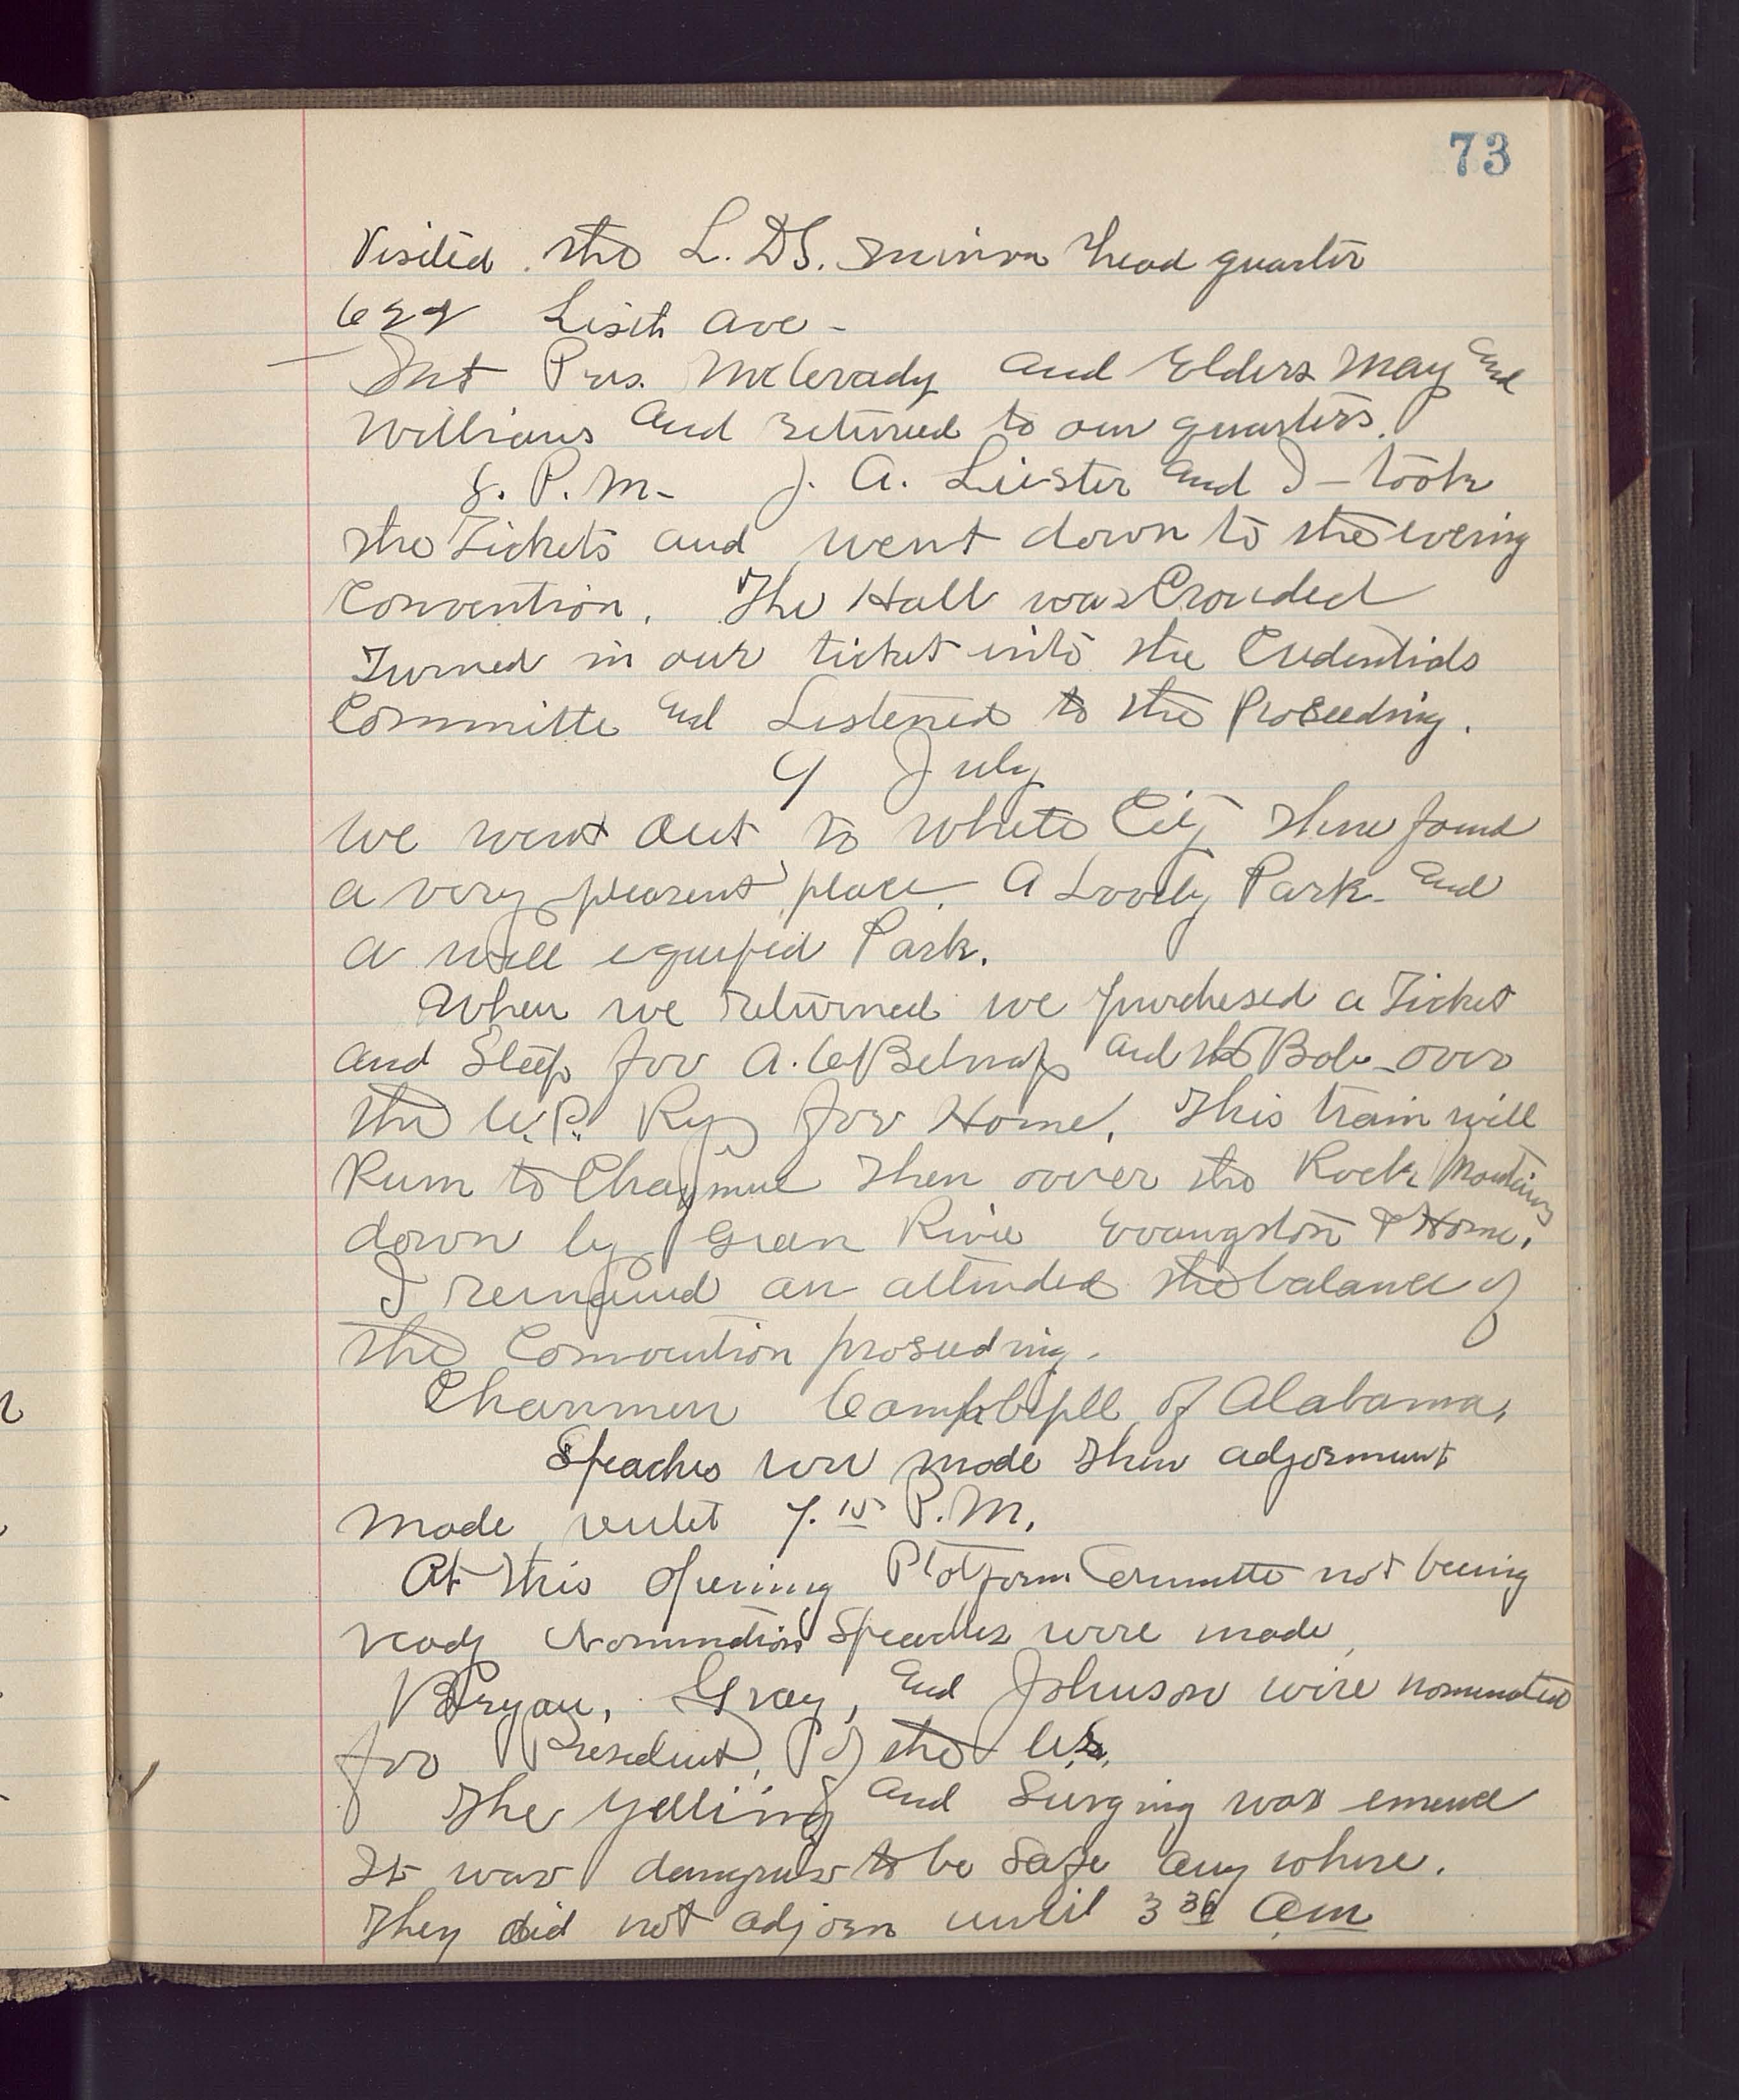 73
Visited the L. D S. Mission head quarter
622 Lisit ave -
Met Pres. McCrady and Elders May and
Williams and returned to our quarters.
8. P. M- J. A. Liester and I - took
the Tickets and went down to the evening
Convention. The Hall was Crouded
Turned in our ticket into the Credentials
Committe and Listened to the Proseeding.
9 July
we went out to White City there found
a very pleasent place. A Lovely Park and
a well equiped Park.
When we returned we purchesed a Ticket
and Sleep for A. C Belnap and the Bob over
the U. P. Ry for Home. This train will
Run to then over the Rock Mountains
down by Green River Evangston & Home.
I remained an attended the balance of
the Convention proseeding.
Charmen of Alabama,
Speaches were made then adjornment
made untel 7.15 P.M.
At this opening Platform Committe not being
ready Nomination Speaches were made
Bryan, Gray, and Johnson were nominated
for President, of the U.S.
The yelling and Surging was emence
It was dangrus to be safe any where.
They did not adjorn until 3 30 am